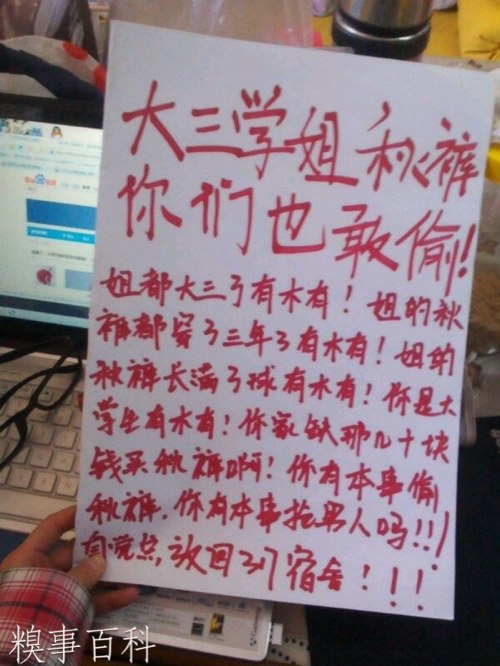 大三学姐秋裤
你们也敢偷!
姐都大三了有木有!姐的秋
裤都穿了三年了有木有!姐的
秋裤长满了球有木有!你是大
学生有木有!你家缺那几十块
钱买秋裤啊!你有本事偷
秋裤,你有本事抢男人吗!!!
自觉点,放回317宿舍!!!
糗事百科